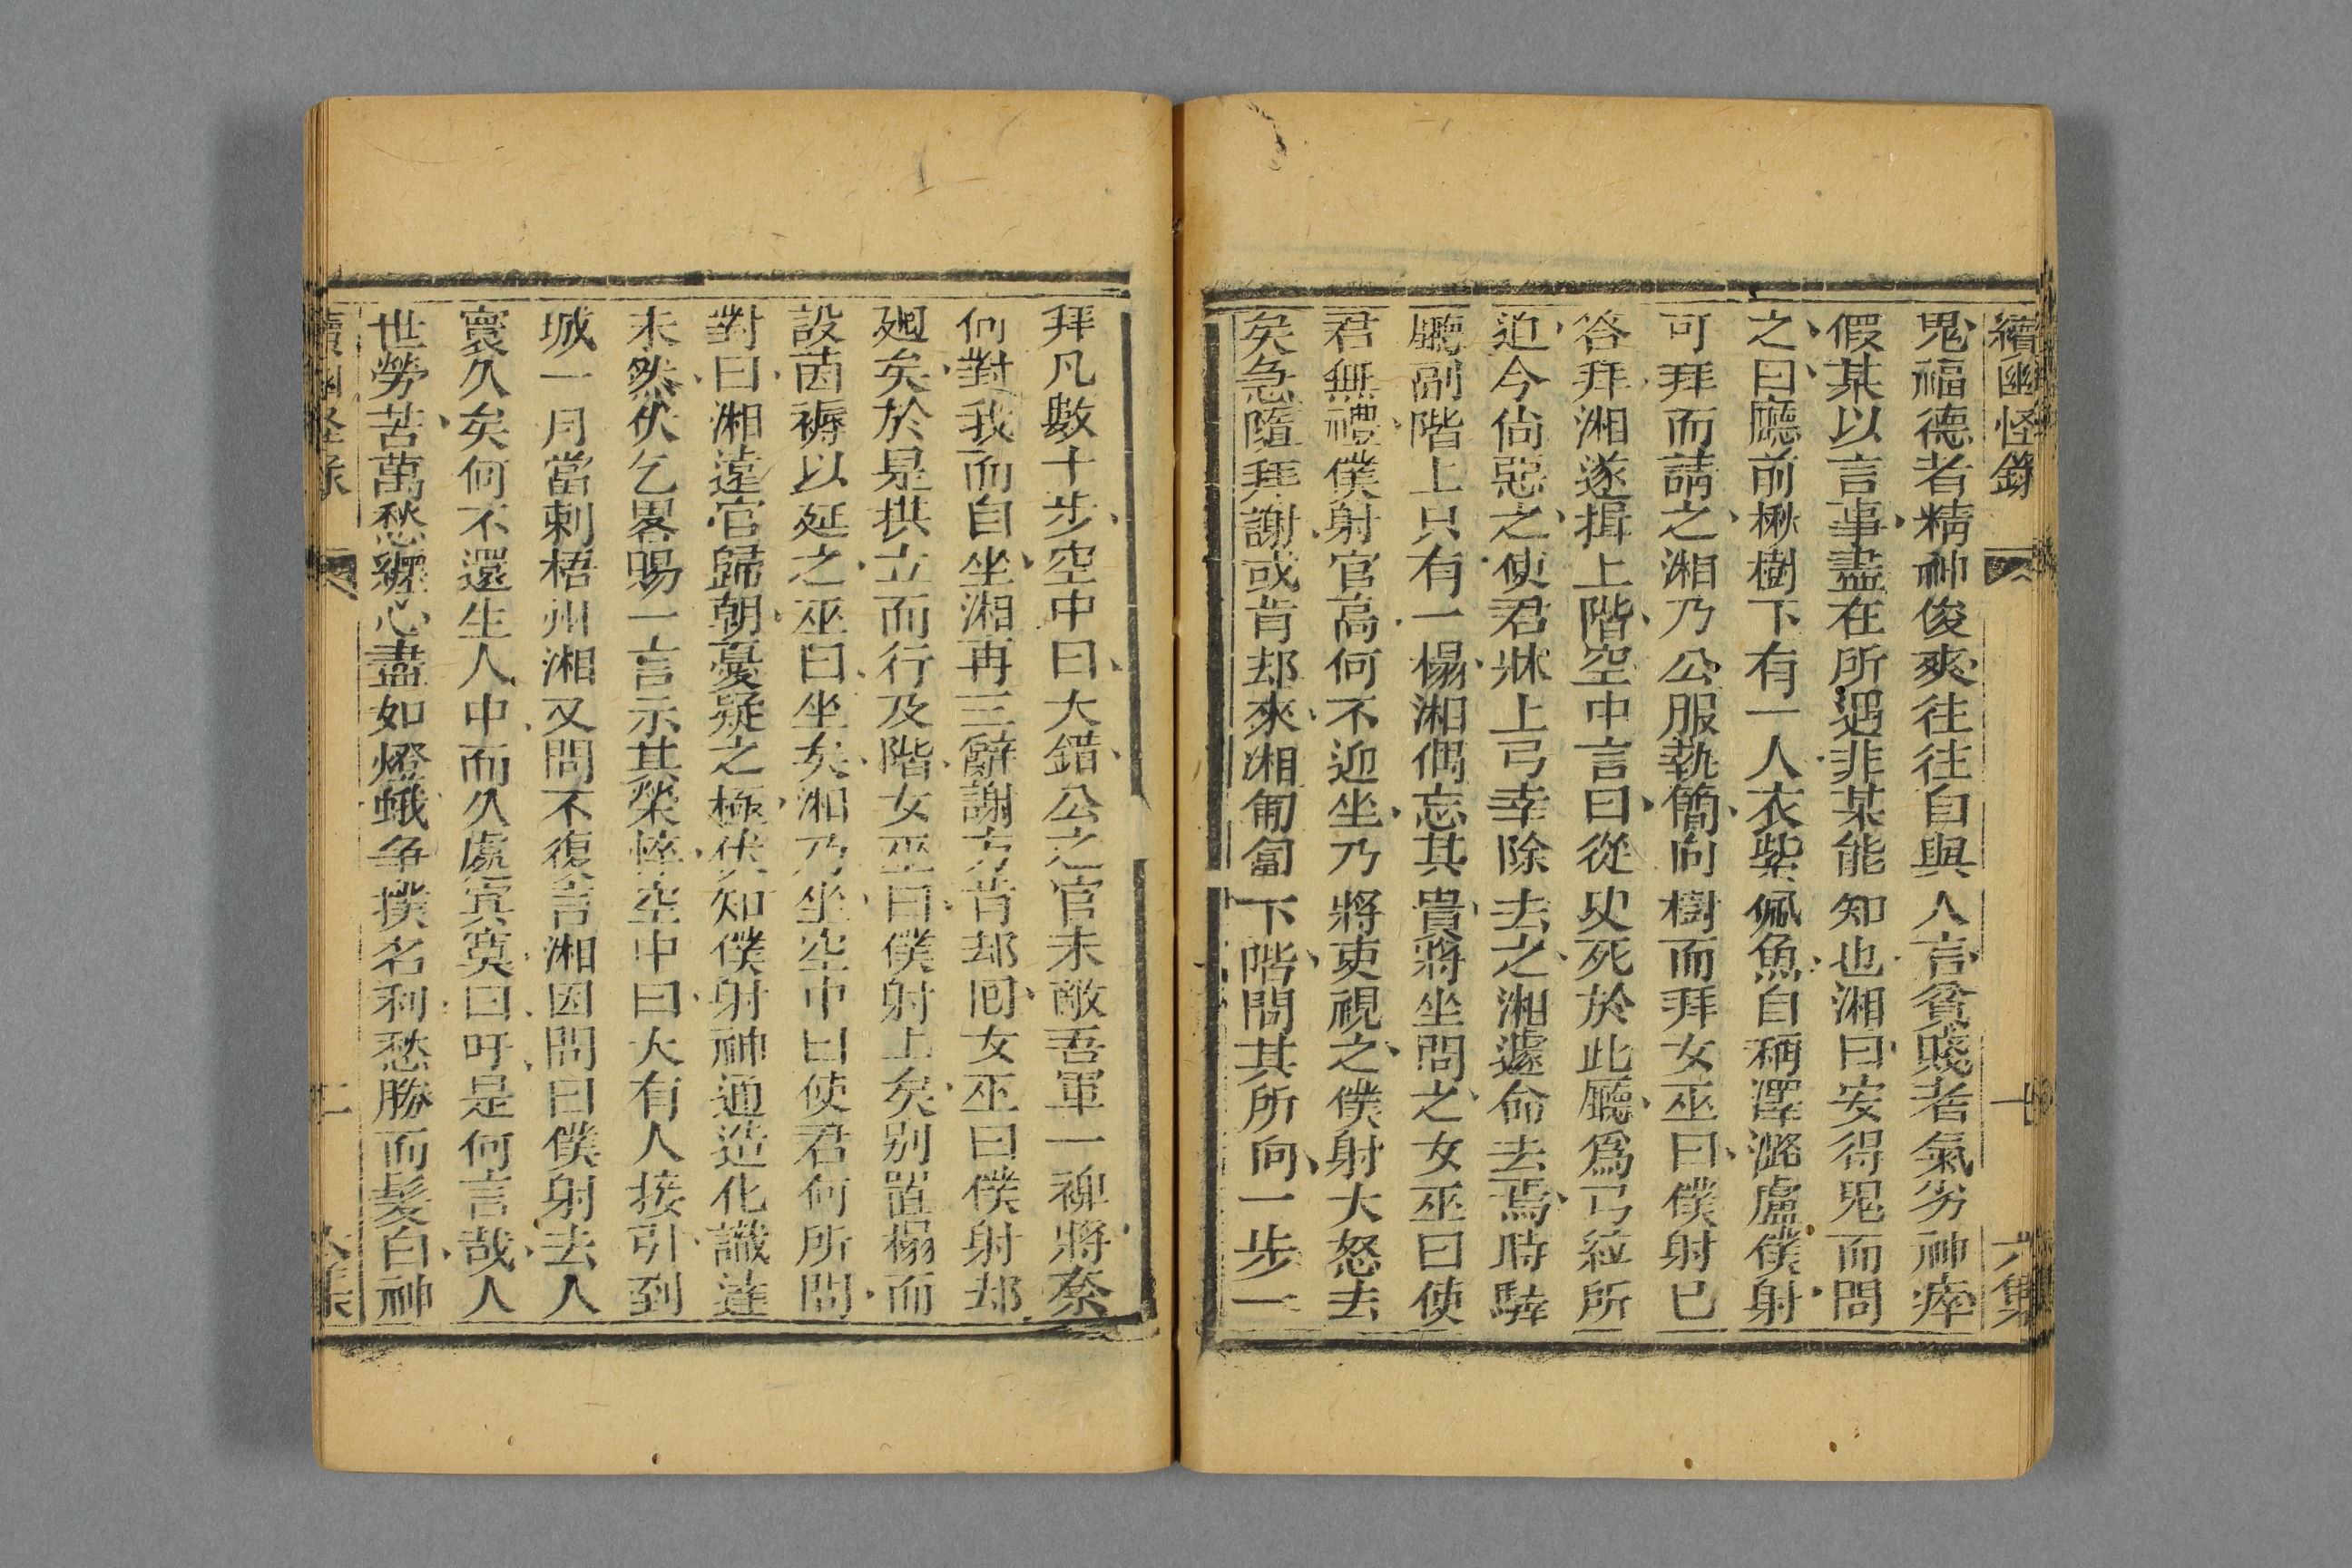 續幽怪錄 十 六集
鬼福德者精神俊爽往往自與人言貧賤者氣劣神瘁
假某以言事盡在所遇非某能知也湘曰安得鬼而問
之曰廳前楸樹下有一人衣紫佩魚自稱澤潞盧僕射
可拜而請之湘乃公服執簡向樹而拜女巫曰僕射已
答拜湘遂揖上階空中言曰從史死於此廳爲弓絃所
迫今尙惡之使君牀上弓幸除去之湘遽命去焉時驛
廳副階上只有一榻湘偶忘其貴將坐問之女巫曰使
君無禮僕射官高何不迎坐乃將吏視之僕射大怒去
矣急隨拜謝或肯却來湘匍匐下階問其所向一步一
拜凡數十步空中曰大錯公之官未敵吾軍一裨將奈
何對我而自坐湘再三辭謝方肯却囘女巫曰僕射却
廻矣於是拱立而行及階女巫曰僕射上矣别置榻而
設茵褥以延之巫曰坐矣湘乃坐空中曰使君何所問
對曰湘遠官歸朝憂疑之極伏知僕射神通造化識達
未然伏乞畧賜一言示其榮悴空中曰大有人接引到
城一月當刺梧州湘又問不復言湘因問曰僕射去人
寰久矣何不還生人中而久處㝠寞曰吁是何言哉人
世勞苦萬愁纒心盡如燈蛾争撲名利愁勝而髮白神